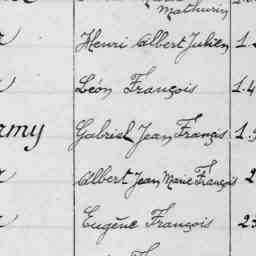 Mathurin
Henri Albert Julien 1.
Léon François 1.4
army Gabriel Jean Françis 1.
Albert Jean Marie François 2
Eugène François 2